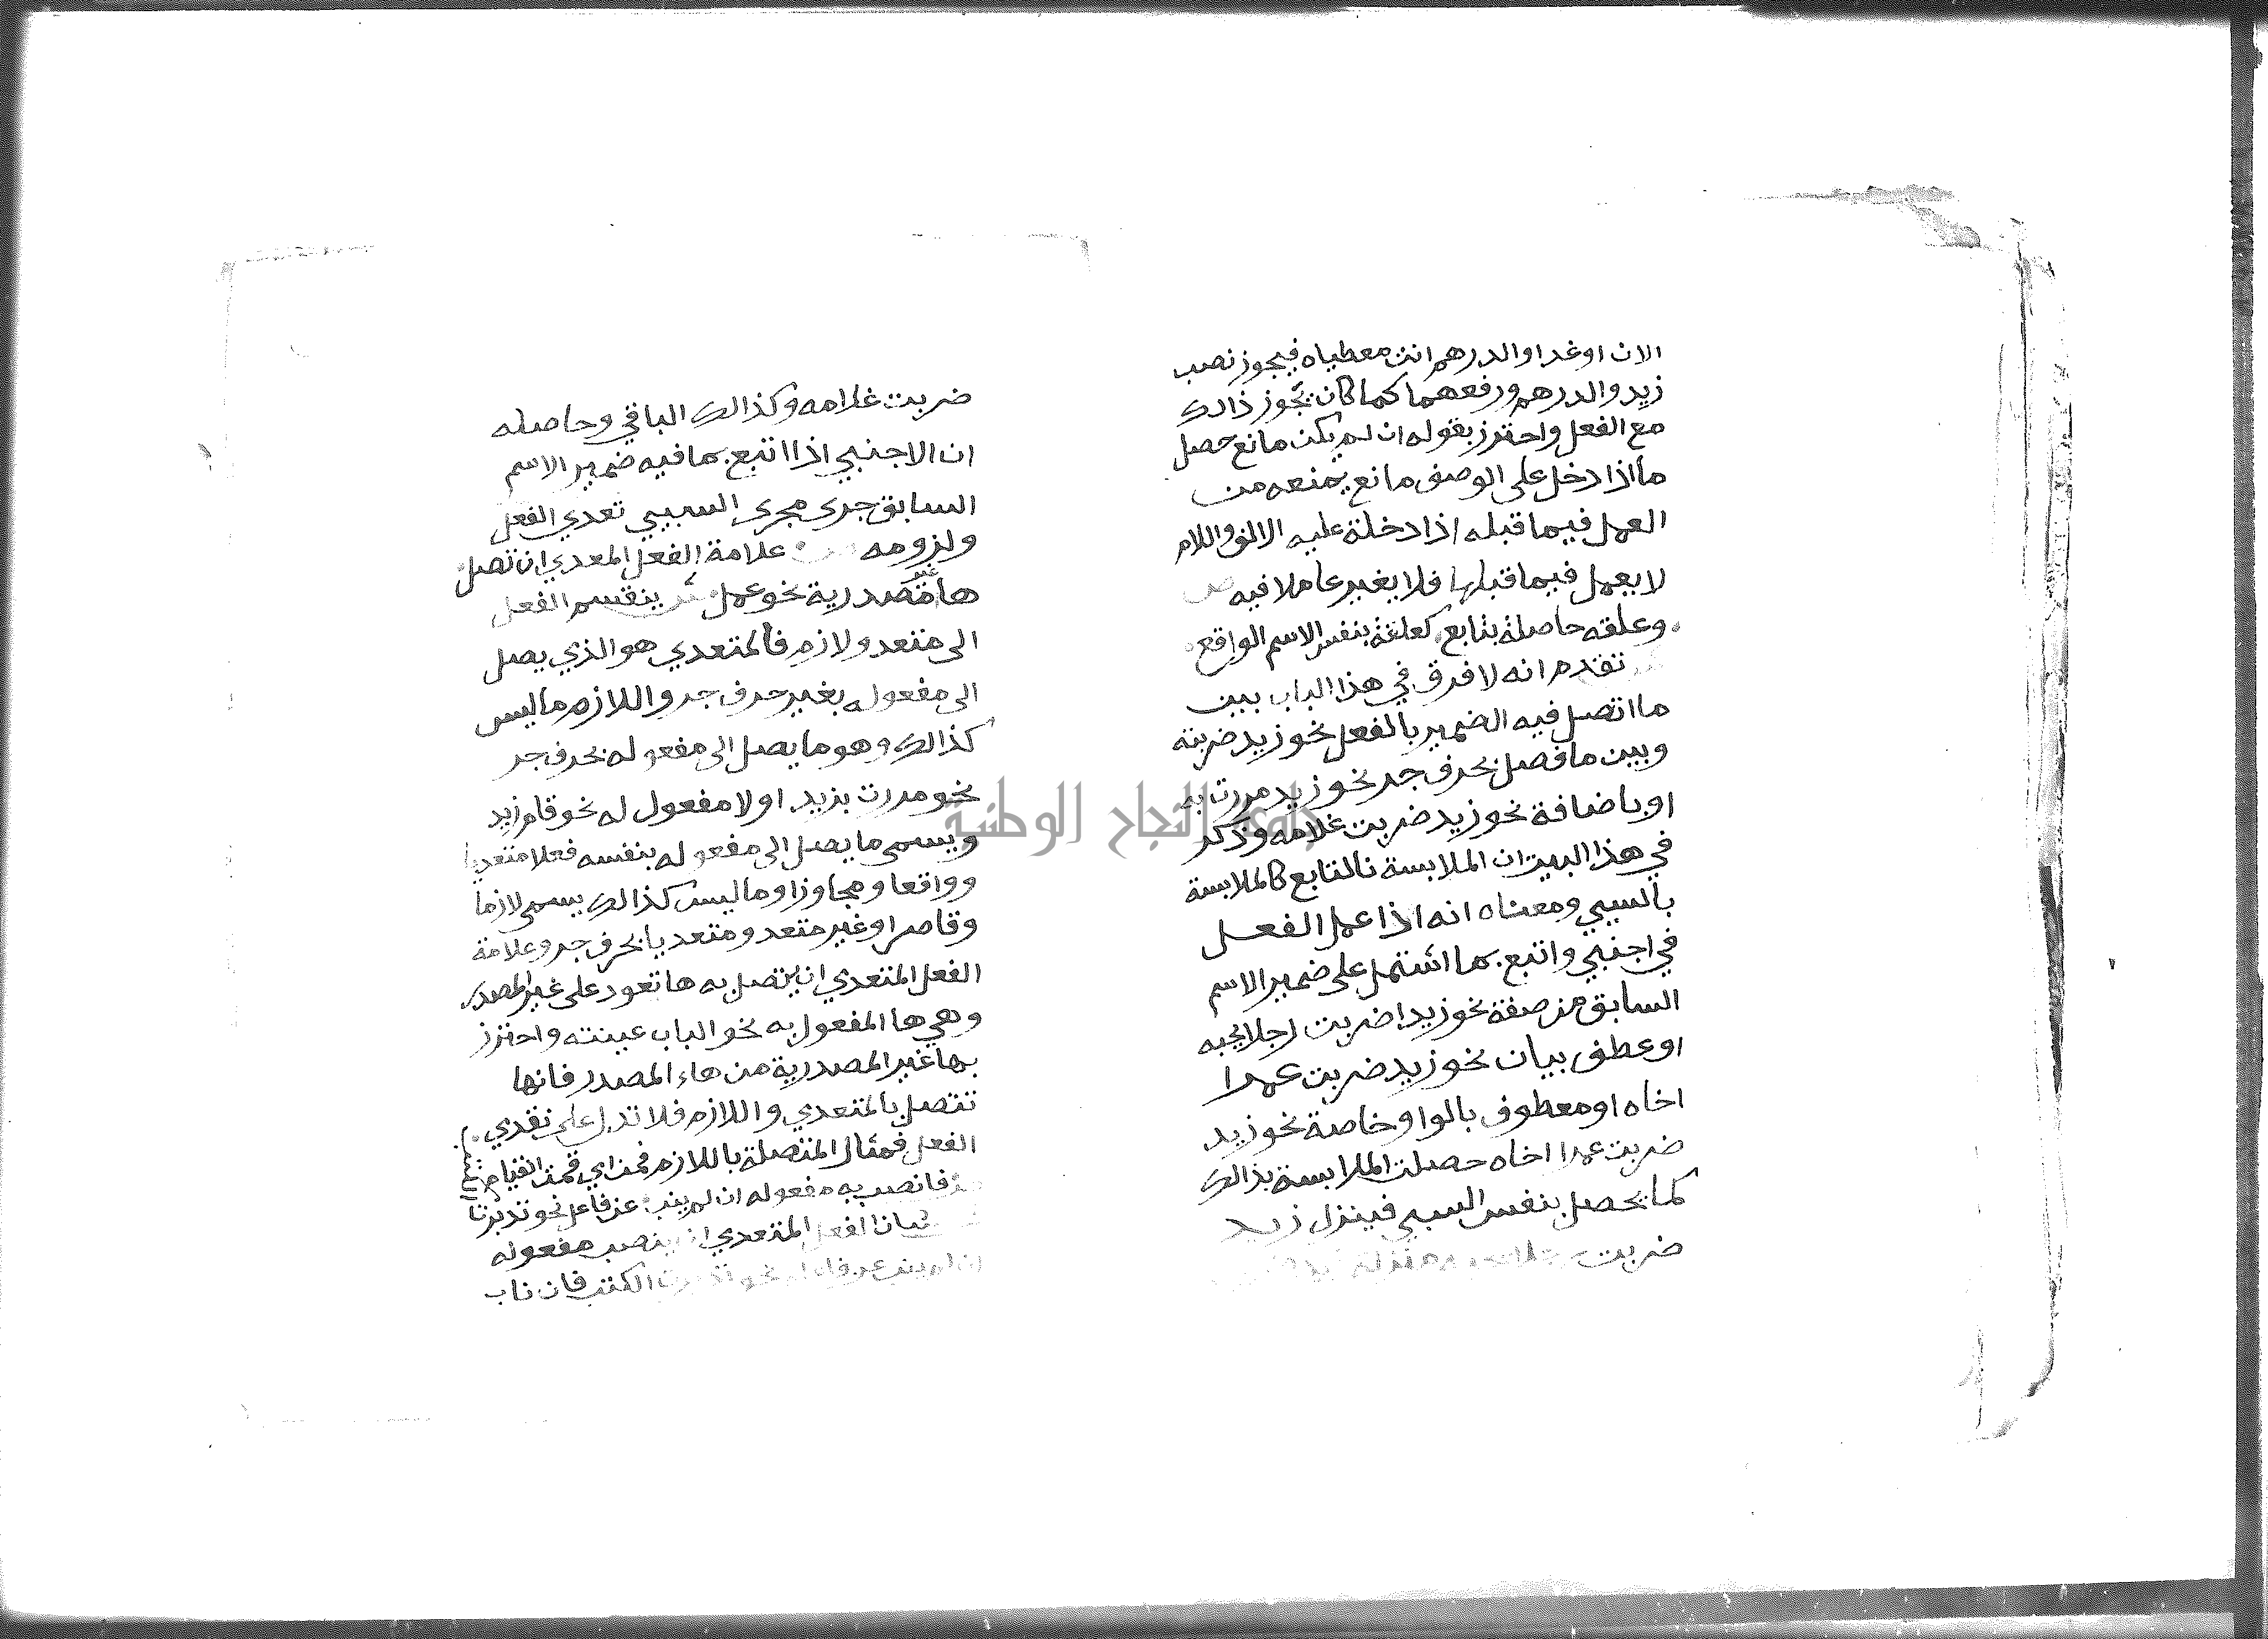 الان اوغدا والدرهم انت معطياه فيجوز نصب
زيد والدرهم ورفعهما كما كان يجوز ذالك
مع الفعل واحترز بقوله ان لم يكن مانع حصل
مااذا دخل على الوصف مانع يمنعه من
العمل فيما قبله اذا دخلة عليه الالف واللام
لا يعمل فيما قبلها فلا يغير عاملا فيه
وعلقه حاصلة بتابع كعلقة بنفس الاسم الواقع
تقدم انه لا فرق في هذا الباب بين
ما اتصل فيه الضمير بالفعل نحو زيد ضربته
وبين ما فصل بحرف جر نحو زيد مررت به
او باضافة نحو زيد ضربت غلامه وذكر
في هذا البيت ان الملابسة بالتابع كالملابسة
بالسببي ومعناه انه اذا عمل الفعل
في اجنبي واتبع بما اشتمل على ضمير الاسم
السابق من صفة نحو زيدا ضربت رجلا يحبه
او عطف بيان نحو زيد ضربت عمرا
اخاه او معطوف بالواو خاصة نحو زيد
ضربت عمرا اخاه حصلت الملابسة بذالك
كما يحصل بنفس السببي فينزل زيد
ضربت
ضربت غلامه وكذالك الباقي وحاصله
ان الاجنبي اذا اتبع بما فيه ضمير الاسم
السابق جرى مجرى السببي تعدي الفعل
ولزومه علامة الفعل المعدي ان تصل
ها غير مصدرية نحو عمل ينقسم الفعل
الى متعد ولازم فالمتعدي هو الذي يصل
الى مفعوله بغير حرف جر واللازم ما ليس
كذالك وهو ما يصل الى مفعوله بحرف جر
نحو مررت بزيد اولا مفعول له نحو قام زيد
ويسمى ما يصل الى مفعوله بنفسه فعلا متعديا
وواقعا ومجاوزا وما ليس كذالك يسمى لازما
وقاصرا وغير متعد ومتعديا بحرف جر وعلامة
الفعل المتعدي ان يتصل به ها تعود على غير المصدر
وهي ها المفعول به نحو الباب عينته واحترز
بها غير المصدرية من هاء المصدر فانها
تتصل بالمتعدي واللازم فلا تدل على تعدي
الفعل فمثال المتصلة باللازم قمت اي قمت القيام
فانصب به مفعوله ان لم ينب عن فاعل نحو تدبرت
شان الفعل المتعدي ان ينصب مفعوله
ان لم ينب عن فاعله نحو تدبرت الكتب فان ناب
جامعة النجاح الوطنية